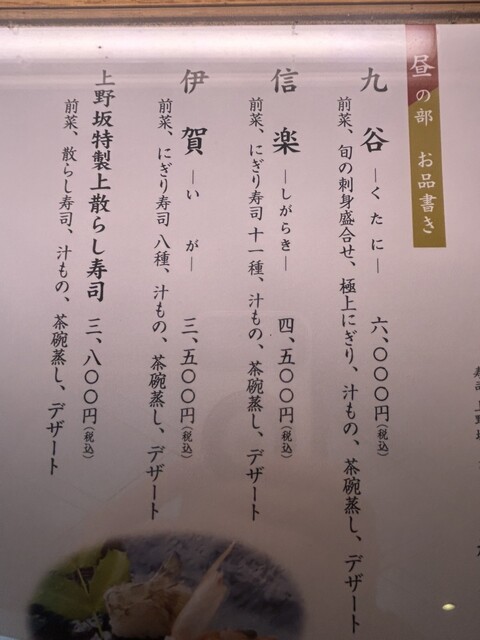 昼の部 お品書き
九谷 ―くたに― 六、〇〇〇円(税込)
前菜、旬の刺身盛合せ、極上にぎり、汁もの、茶碗蒸し、デザート
信楽 ―しがらき― 四、五〇〇円(税込)
前菜、にぎり寿司 十一種、汁もの、茶碗蒸し、デザート
伊賀 ―いが― 三、五〇〇円(税込)
前菜、にぎり寿司 八種、汁もの、茶碗蒸し、デザート
上野坂特製上散らし寿司 三、八〇〇円(税込)
前菜、散らし寿司、汁もの、茶碗蒸し、デザート